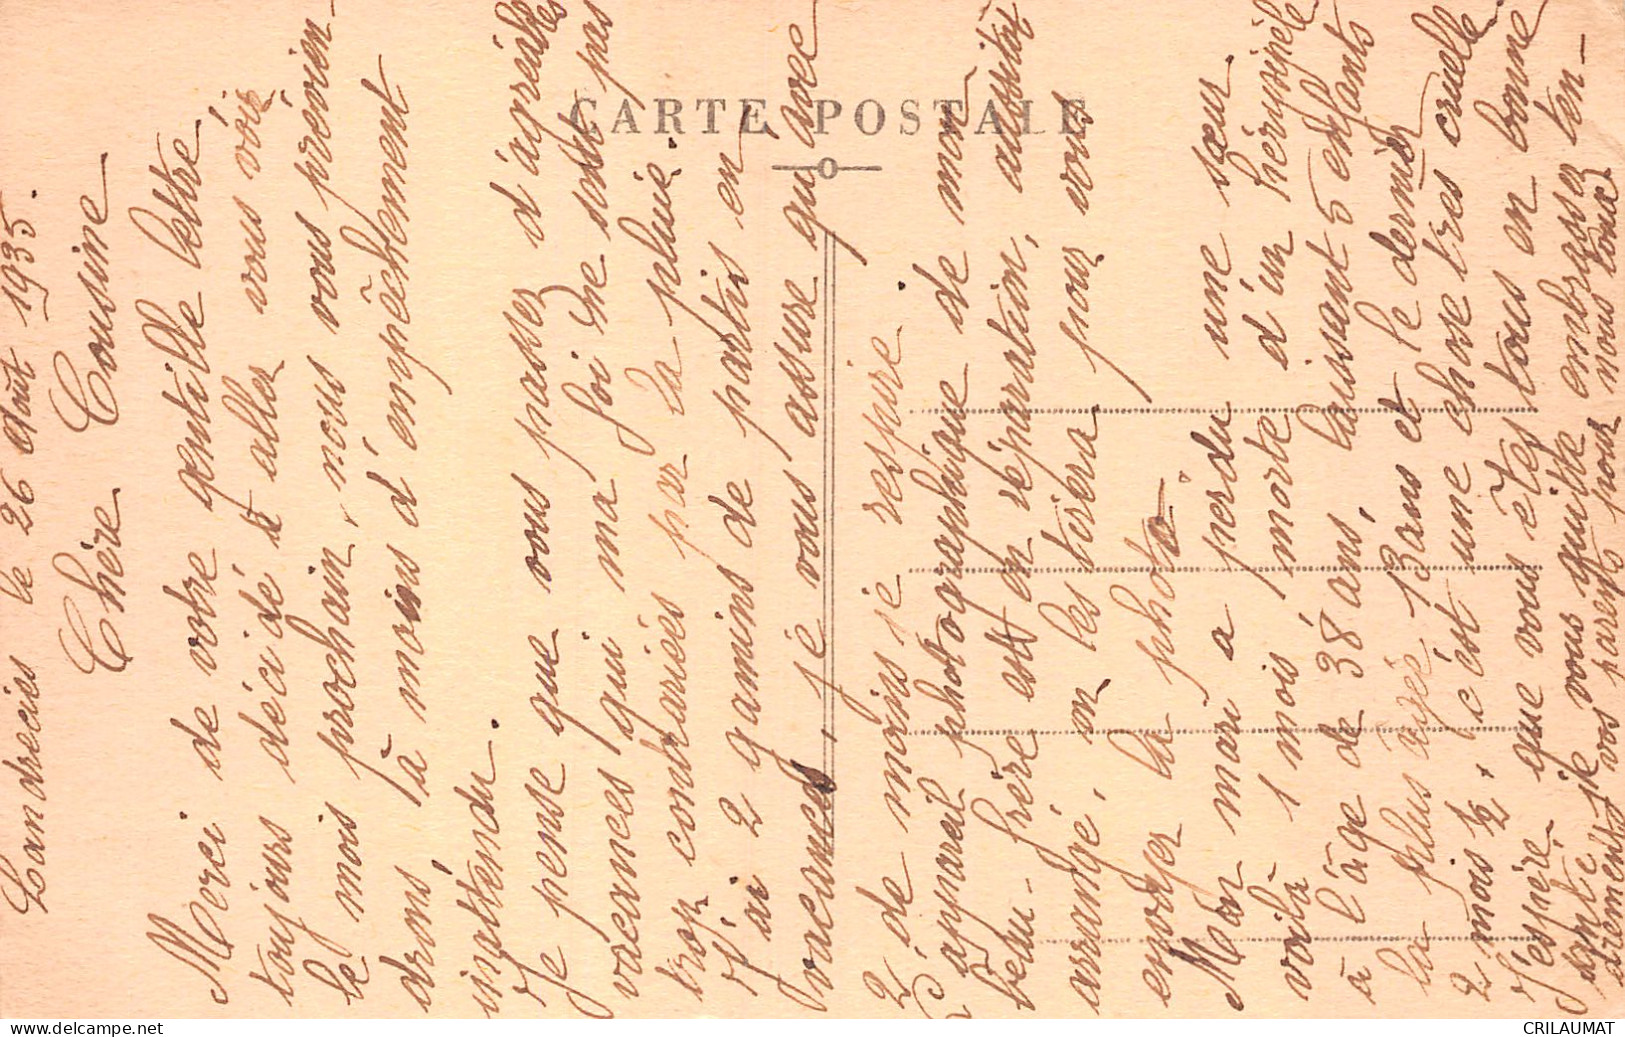 CARTE POSTALE
Landrecies le 26 Août 1935.
Chère Cousine
Merci de votre gentille lettre.
toujours décidé à aller vous voir
le mois prochain, nous vous prévien-
drons, à moins d'empêchement
inattendu.
Je pense que vous passez d'agréables
vacances qui ma foi ne sont pas
trop contrariées par la pluie.
J'ai 2 gamins de partis en
vacances, je vous assure qu'avec
2 de moins je respire.
L'appareil photographique de mon
beau-frère est en réparation, aussitôt
arrangé, on les tirera pour vous
envoyer la photo
Mon mari a perdu une sœur
voilà 1 mois morte d'un hérysipèle
à l'âge de 38 ans, laissant 5 enfants
la plus âgée 13 ans et le dernier
2 mois ½, c'est une chose très cruelle
J'espère que vous êtes tous en bonne
santé je vous quitte embrassez ten-
drement vos parents pour nous tous.
CRILAUMAT